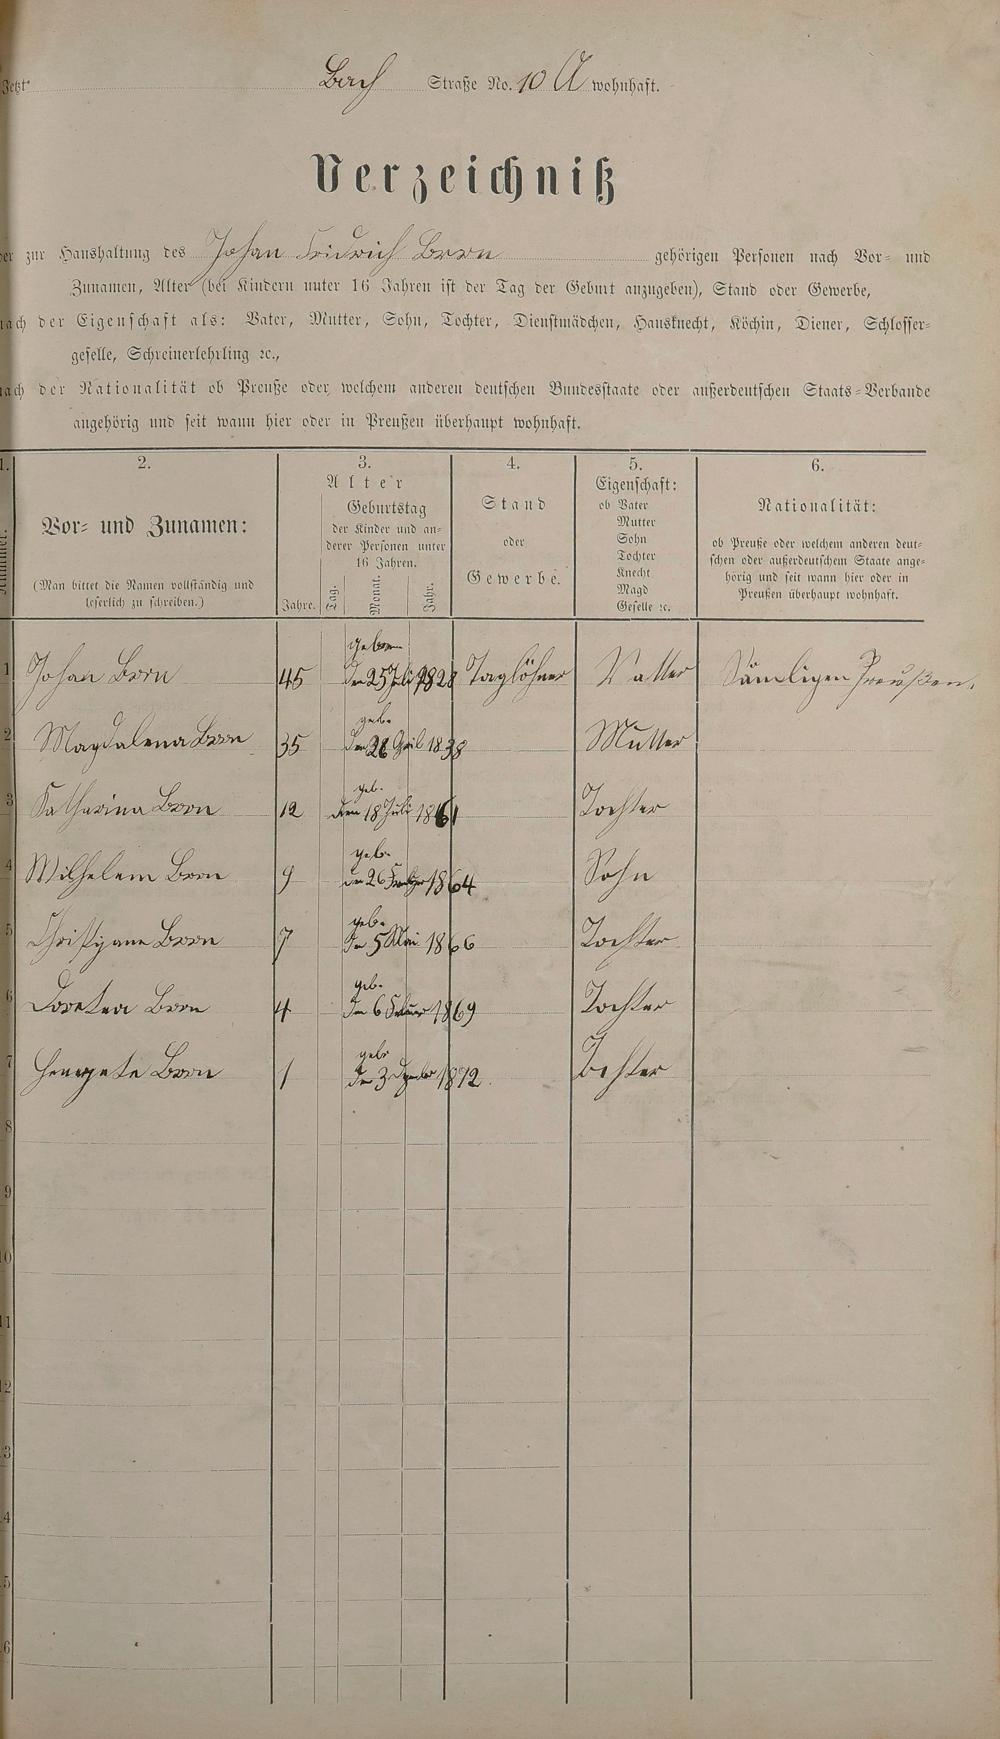 Jetzt Bach Straße No. 10 A wohnhaft.
Verzeichniß
der zur Haushaltung des Johan Fridrich Born gehörigen Personen nach Vor- und
Zunamen, Alter (bei Kindern unter 16 Jahren ist der Tag der Geburt anzugeben), Stand oder Gewerbe,
nach der Eigenschaft als: Vater, Mutter, Sohn, Tochter, Dienstmädchen, Hausknecht, Köchin, Diener, Schlosser-
geselle, Schreinerlehrling ꝛc.,
nach der Nationalität ob Preuße oder welchem anderen deutschen Bundesstaate oder außerdeutschen Staats-Verbande
angehörig und seit wann hier oder in Preußen überhaupt wohnhaft.
1. 2. 3. 4. 5. 6.
Nummer.
Vor- und Zunamen:
(Man bittet die Namen vollständig und
leserlich zu schreiben.)
Alter
Jahre.
Geburtstag
der Kinder und an-
derer Personen unter
16 Jahren.
Tag. Monat. Jahr.
Stand
oder
Gewerbe.
Eigenschaft:
ob Vater
Mutter
Sohn
Tochter
Knecht
Magd
Geselle ꝛc.
Nationalität:
ob Preuße oder welchem anderen deut-
schen oder außerdeutschem Staate ange-
hörig und seit wann hier oder in
Preußen überhaupt wohnhaft.
geboren
1 Johan Born 45 den 25 Juli 1828 Taglöhner Vatter Sämligen Preußen.
geb.
2 Magdalena Born 35 den 28 April 1838 Mutter
geb.
3 Katharina Born 12 den 18 Juli 1861 Tochter
geb.
4 Wilhelem Born 9 den 26 1864 Sohn
geb.
5 Christjane Born 7 den 5 Mai 1866 Tochter
geb.
6 Doretea Born 4 den 6 Februar 1869 Tochter
geb
7 Born 1 den 3 1872 Tochter
8
9
10
11
12
13
14
15
16